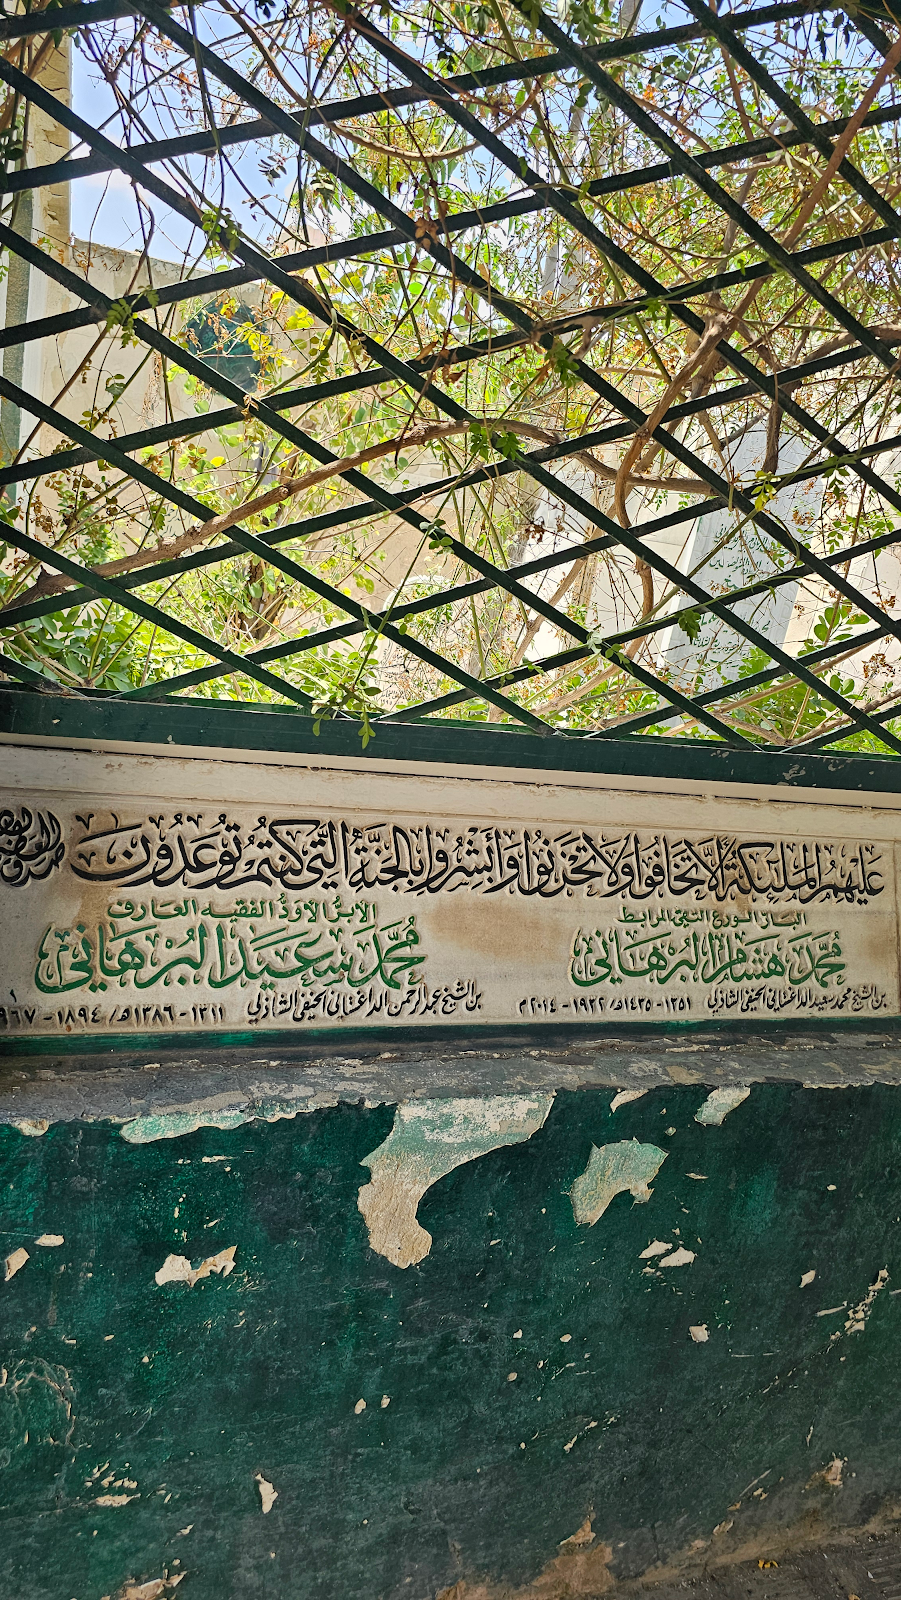 عَلَيْهِمُ الْمَلَٰئِكَةُ أَلَّا تَخَافُوا وَلَا تَحْزَنُوا وَأَبْشِرُوا بِالْجَنَّةِ الَّتِي كُنتُمْ تُوعَدُونَ
البار الورع التقي المرابط
مُحَمَّد هِشَام البُرْهَانِي
بن الشيخ محمد سعيد الداغستاني الحنفي الشاذلي ١٣٥١ - ١٤٣٥هـ/ ١٩٣٢ - ٢٠١٤م
الأبرّ الأوذّ الفقيه العارف
مُحَمَّد سَعِيد البُرْهَانِي
بن الشيخ عبد الرحمن الداغستاني الحنفي الشاذلي ١٣١١ - ١٣٨٦هـ/ ١٨٩٤ - ٩٦٧